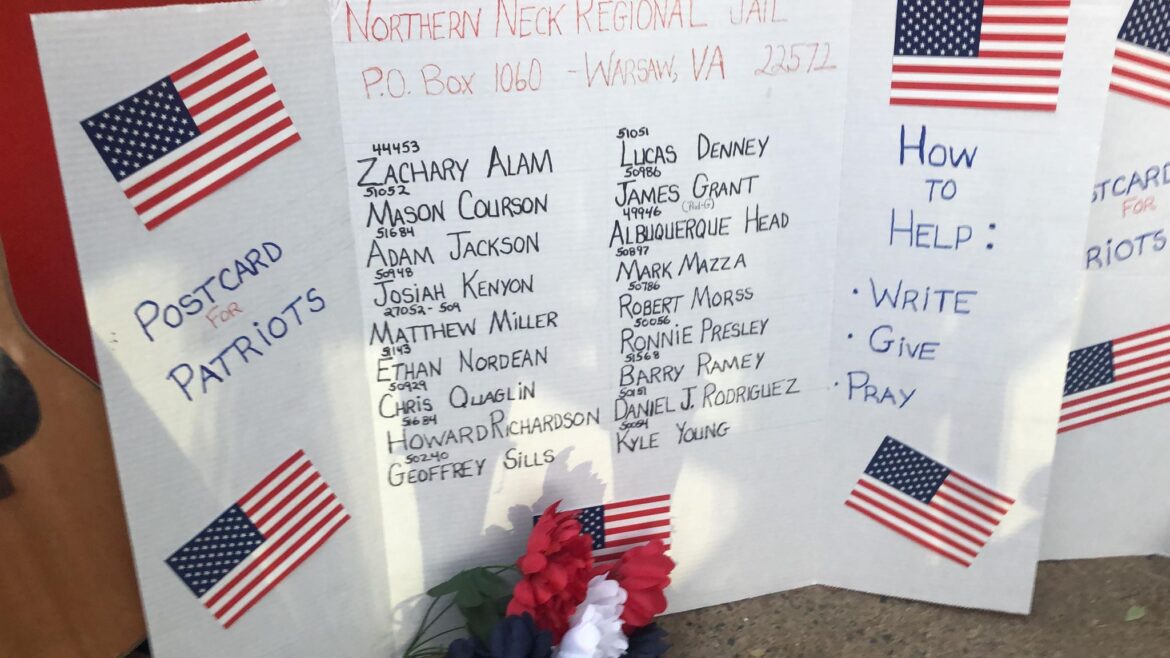 NORTHERN NECK REGIONAL JAIL
P.O. BOX 1060 - WARSAW, VA 22572
POSTCARD
FOR
PATRIOTS
44453
ZACHARY ALAM
51052
MASON COURSON
51684
ADAM JACKSON
50948
JOSIAH KENYON
27052-509
MATTHEW MILLER
51143
ETHAN NORDEAN
50929
CHRIS QUAGLIN
51684
HOWARD RICHARDSON
50240
GEOFFREY SILLS
51051
LUCAS DENNEY
50986
JAMES GRANT
(Pod-G)
49946
ALBUQUERQUE HEAD
50897
MARK MAZZA
50786
ROBERT MORSS
50056
RONNIE PRESLEY
51568
BARRY RAMEY
50151
DANIEL J. RODRIGUEZ
50054
KYLE YOUNG
HOW
TO
HELP:
• WRITE
• GIVE
• PRAY
STCARD
FOR
RIOTS